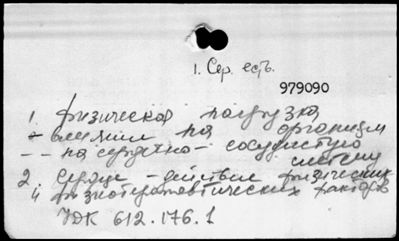 1. Сер. есть.
979090
1. физическая нагрузка
- влияние на организм
-- на сердечно-сосудистую
систему
2. Сердце - действие физических
и физиотерапевтических факторов
УДК 612.176.1